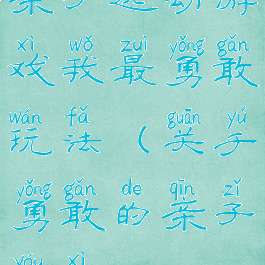 亲子运动游
xì wǒ zuì yǒng gǎn
戏我最勇敢
wán fǎ guān yú
玩法(关于
yǒng gǎn de qīn zǐ
勇敢的亲子
yóu xì